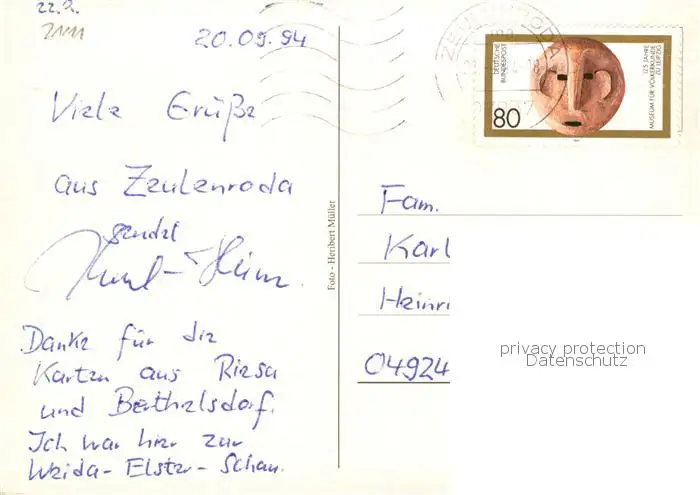 22.9.
20.09.94
Viele Grüße
aus Zeulenroda
sendet
Karl-Heinz.
Danke für die
Karten aus Riesa
und Berthelsdorf.
Ich war hier zur
Weida-Elster-Schau.
Foto - Heribert Müller
ZEULENRODA
DEUTSCHE
BUNDESPOST
80
125 JAHRE
MUSEUM FÜR VÖLKERKUNDE
ZU LEIPZIG
Fam.
Karl
Heinri
04924
privacy protection
Datenschutz